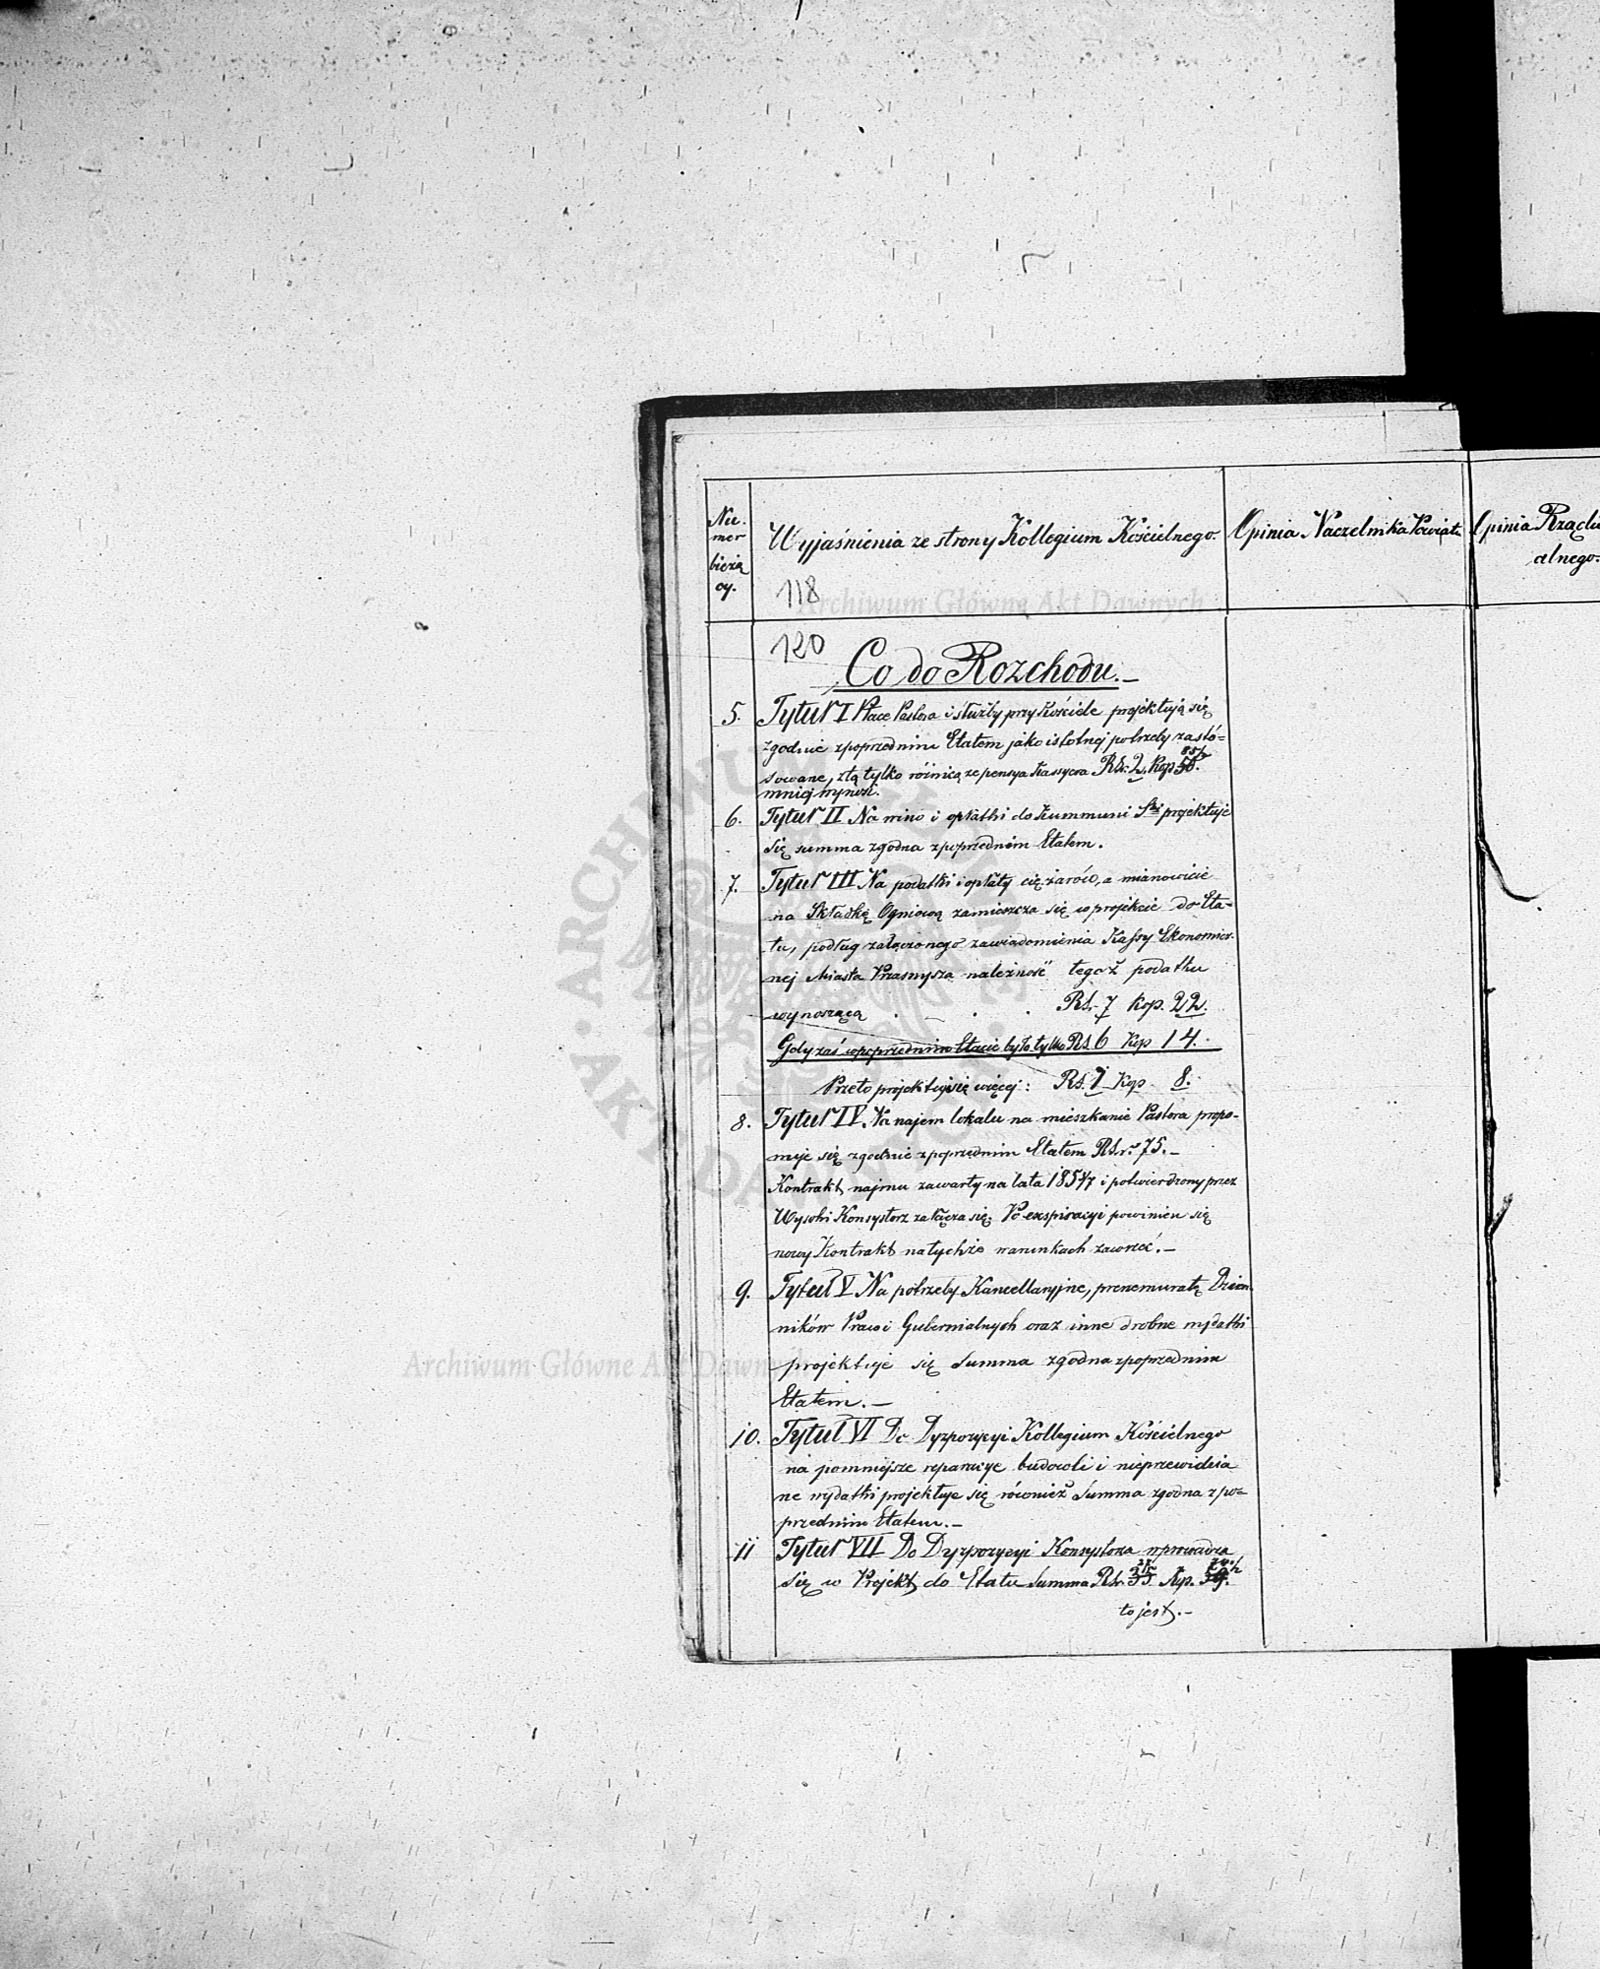 Nu-
mer
bieżą
cy.
Wyjaśnienia ze strony Kollegium Kościelnego.
Opinia Naczelnika Powiatu
Opinia Rządu
alnego.
118
Archiwum Główne Akt Dawnych
120
Co do Rozchodu.-
5. Tytuł I Płace Pastora i służby przy Kościele projektują się
zgodnie z poprzednim Etatem jako istotnej potrzeby zastó-
sowane, z tą tylko różnicą że pensya Kassyera Rs. 2. Kop
mniej wynosi.
6. Tytuł II Na wino i opłatki do Kummunii Stej projektuje
się summa zgodna z poprzednim Etatem.
7. Tytuł III Na podatki i opłaty ciężarów, a mianowicie
na Składkę Ogniową zamieszcza się w projekcie do Eta-
tu, podług załączonego zawiadomienia Kassy Ekonomicz-
nej Miasta Przasnysza należność tegoż podatku
wynoszącą . . . Rs. 7 Kop. 22.
Gdy zaś w poprzednim Etacie było tylko Rs 6 Kop 14.
Przeto projektuje się więcej: Rs. 1 Kop. 8.
8. Tytuł IV. Na najem lokalu na mieszkanie Pastora propo-
nuje się zgodnie z poprzednim Etatem Rs. 75.-
Kontrakt najmu zawarty na lata 1854/7 i potwierdzony przez
Wysoki Konsystorz załącza się. Po exspiracyi powinien się
nowy Kontrakt na tychże warunkach zawrzeć.-
9. Tytuł V Na potrzeby Kancellaryjne, prenumeratę Dzien-
ników Praw i Gubernialnych oraz inne drobne wydatki
projektuje się Summa zgodna z poprzednim
Etatem.-
10. Tytuł VI Do Dyspozycyi Kollegium Kościelnego
na pomniejsze reparacye budowli i nieprzewidzia
ne wydatki projektuje się również Summa zgodna z po-
przednim Etatem.-
11 Tytuł VII Do Dyspozycyi Konsystorza wprowadza
się w Projekt do Etatu Summa Rs. 35 Kop.
to jest.-
ARCHIWUM GŁÓWNE AKT DAWNYCH
Archiwum Główne Akt Dawnych